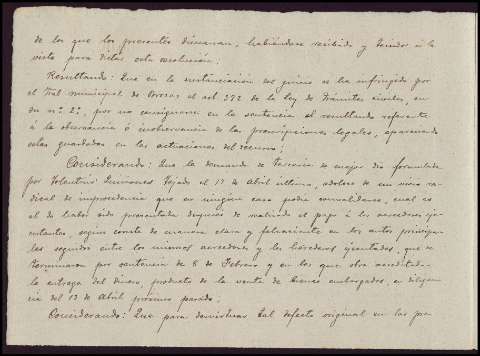 de los que los presentes dimanan, habiéndose recibido y tenidos á la
vista para dictar esta resolución;
Resultando: Que en la sustanciación del juicio se ha infringido por
el Tral. municipal de el art. 372 de la Ley de Trámites civiles, en
su nº 2º, por no consignarse en la sentencia el resultando referente
á la observancia ó inobservancia de las prescripciones legales, apareciendo
estas guardadas en las actuaciones del recurso;
Considerando: Que la demanda de tercería de mejor dro. formulada
por Quiñones Tejado el 17 de Abril último, adolece de un vicio ra-
dical de improcedencia que en ningún caso podría convalidarse, cual es
el de haber sido presentada después de realizado el pago á los acreedores eje-
cutantes, según consta de manera clara y fehaciente en los autos principa-
les seguidos entre los mismos acreedores y los herederos ejecutados, que se
terminaron por sentencia de 8 de Febrero y en los que obra acreditada
la entrega del dinero, producto de la venta de bienes embargados, en diligen-
cia del 13 de Abril próximo pasado;
Considerando: Que para desvirtuar tal defecto original en las pre-